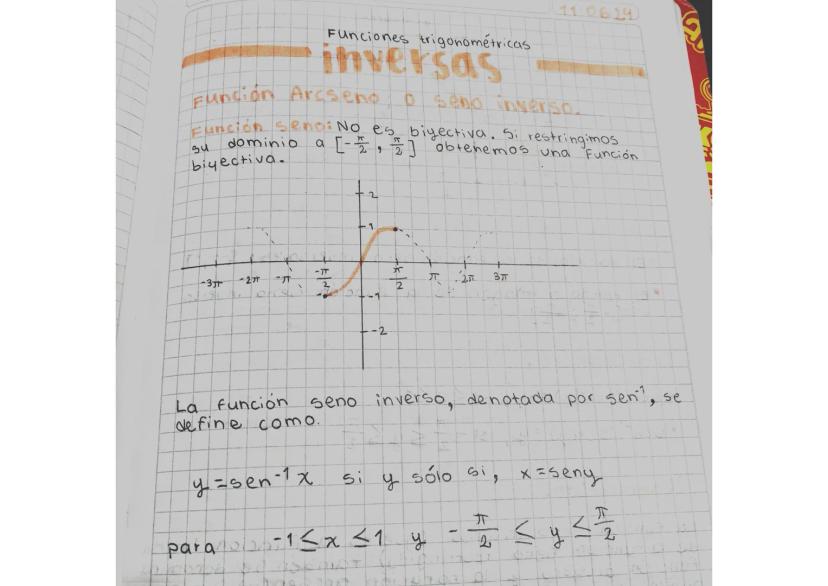 11 06 24
Funciones trigonométricas
inversas
Función Arcseno o seno inverso.
Función seno: No es biyectiva. Si restringimos
su dominio a [-π/2, π/2] obtenemos una función
biyectiva.
2
1
-3π -2π -π -π/2 π/2 π 2π 3π
-1
-2
La función seno inverso, denotada por sen⁻¹, se
define como.
y = sen⁻¹ x si y sólo si, x = sen y
para -1 ≤ x ≤ 1 y -π/2 ≤ y ≤ π/2